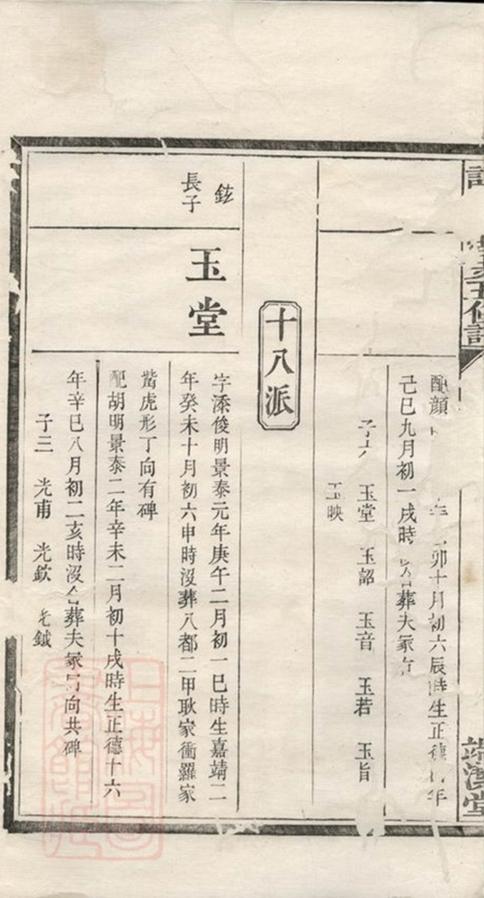 五修譜
端溪堂
配顏 卯十月初六辰時生正德 年
己巳九月初一戌時 葬夫冢
子六 玉堂 玉韶 玉音 玉若 玉旨
玉映
十八派
鉉
長子
玉堂
字添俊明景泰元年庚午二月初一巳時生嘉靖二
年癸未十月初六申時沒葬八都二甲耿家衝羅家
嘴虎形丁向有碑
配胡明景泰二年辛未二月初十戌時生正德十六
年辛巳八月初二亥時沒 葬夫冢 向共碑
子三 光甫 光欽 光鉞